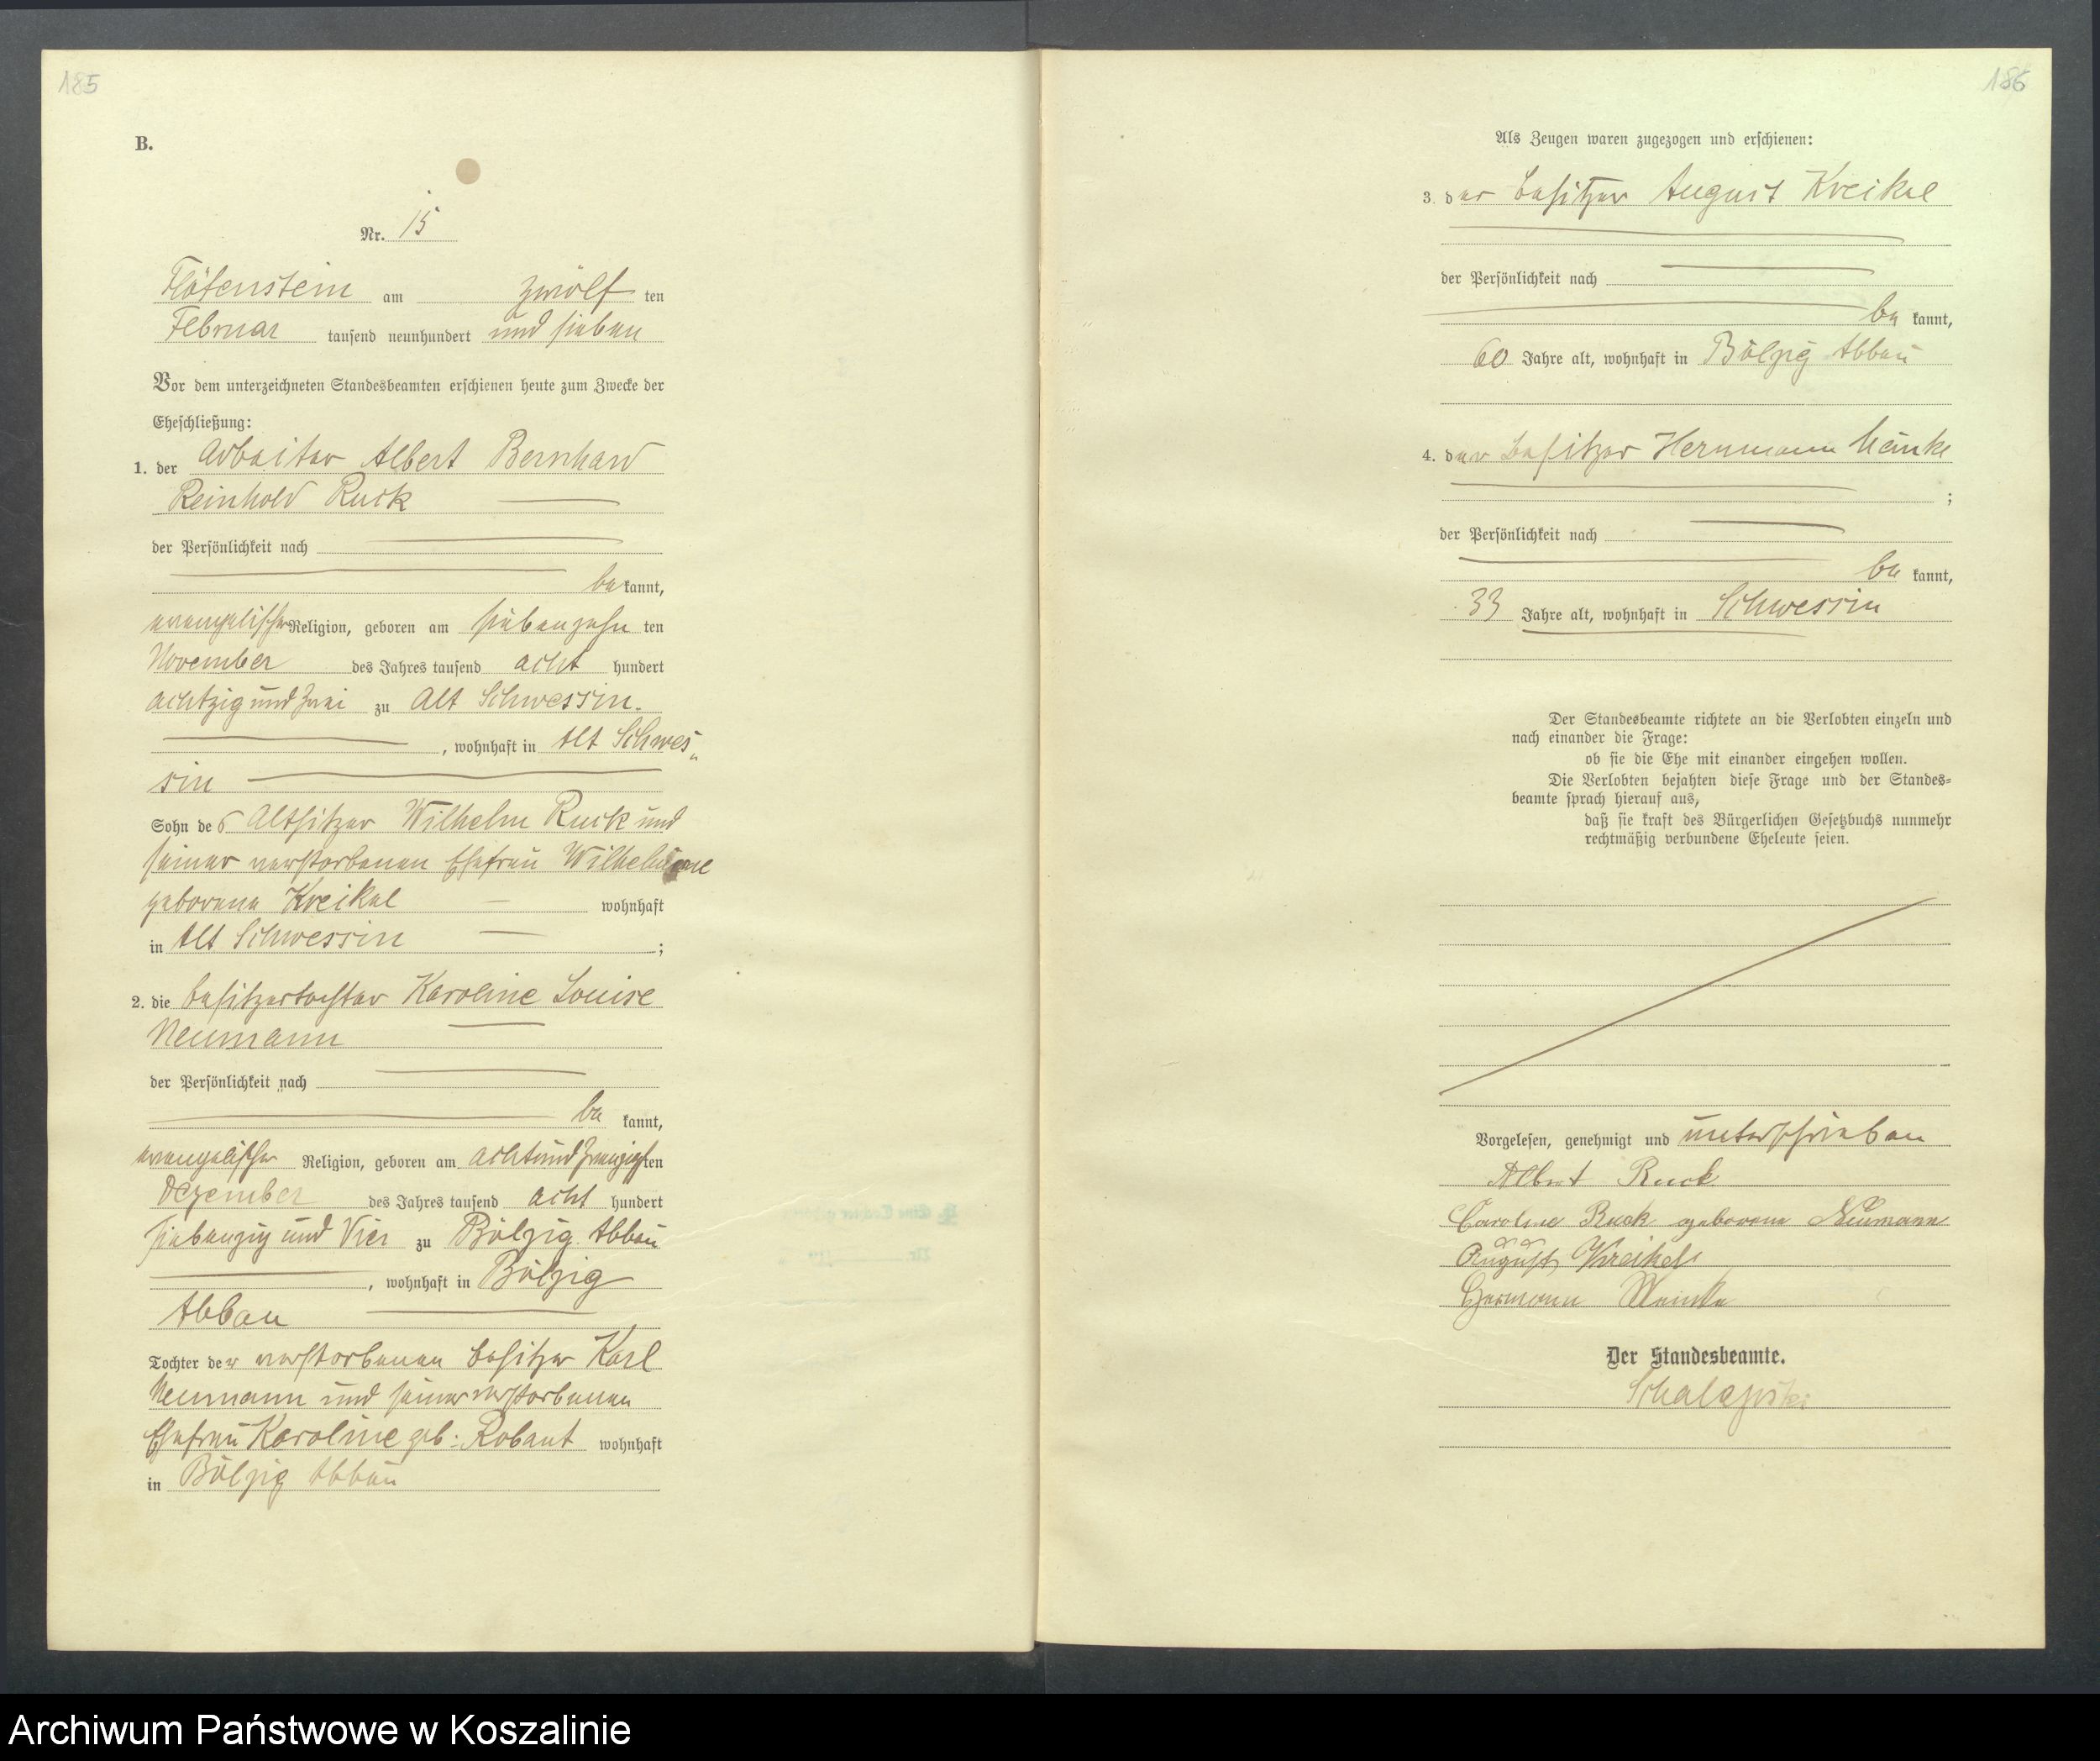 185
B.
Nr. 15
Flötenstein am zwölf ten
Februar tausend neunhundert und sieben
Vor dem unterzeichneten Standesbeamten erschienen heute zum Zwecke der
Eheschließung:
1. der Arbeiter Albert Bernhard
Reinhold Ruck
der Persönlichkeit nach
be kannt,
evangelischer Religion, geboren am siebenzehn ten
November des Jahres tausend acht hundert
achtzig und zwei zu Alt Schwessin.
, wohnhaft in Alt Schwes„
sin
Sohn des Altsitzer Wilhelm Ruck und
seiner verstorbenen Ehefrau Wilhelmine
geborene Kreikel wohnhaft
in Alt Schwessin ;
2. die Besitzertochter Karoline Louise
Neumann
der Persönlichkeit nach
be kannt,
evangelischer Religion, geboren am achtundzwanzigsten
Dezember des Jahres tausend acht hundert
siebenzig und vier zu Bölzig Abbau
, wohnhaft in Bölzig
Abbau
Tochter der verstorbenen Besitzer Karl
Neumann und seiner verstorbenen
Ehefrau Karoline geb: Robant wohnhaft
in Bölzig Abbau
186
Als Zeugen waren zugezogen und erschienen:
3. der Besitzer August Kreikel
der Persönlichkeit nach
be kannt,
60 Jahre alt, wohnhaft in Bölzig Abbau
4. der Besitzer Hermann Meinke
;
der Persönlichkeit nach
be kannt,
33 Jahre alt, wohnhaft in Schwessin
Der Standesbeamte richtete an die Verlobten einzeln und
nach einander die Frage:
ob sie die Ehe mit einander eingehen wollen.
Die Verlobten bejahten diese Frage und der Standes-
beamte sprach hierauf aus,
daß sie kraft des Bürgerlichen Gesetzbuchs nunmehr
rechtmäßig verbundene Eheleute seien.
Vorgelesen, genehmigt und unterschrieben
Albert Ruck
Caroline Ruck geborene Neumann
August Kreikel
Hermann Meinke
Der Standesbeamte.
Archiwum Państwowe w Koszalinie